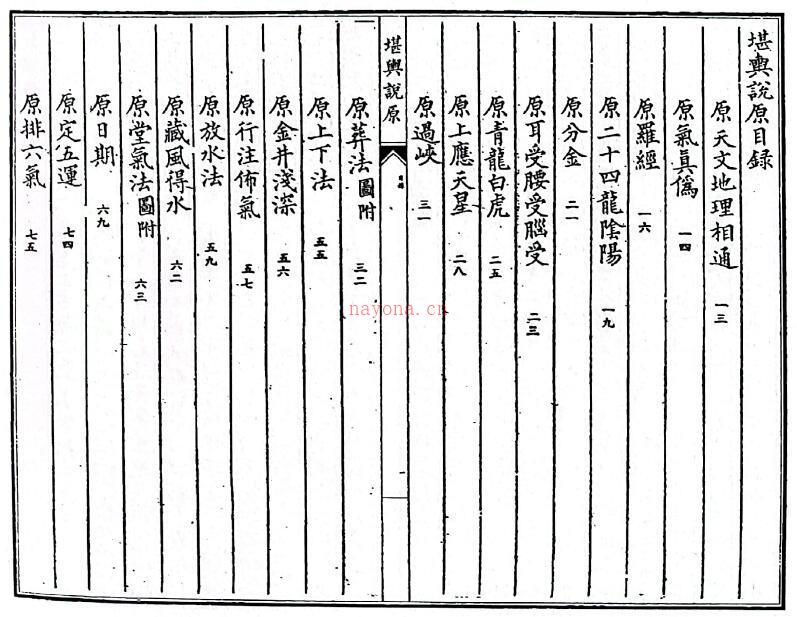 堪輿說原目錄
原天文地理相通 一三
原氣真僞 一四
原羅經 一六
原二十四龍陰陽 一九
原分金 二一
原耳受腰受腦受 二三
原青龍白虎 二五
原上應天星 二八
原過峽 三一
堪輿說原
目錄
原葬法圖附 三二
原上下法 五五
原金井淺深 五六
原行注佈氣 五七
原放水法 五九
原藏風得水 六二
原堂氣法圖附 六三
原日期 六九
原定五運 七四
原排六氣 七五
nayona.cn